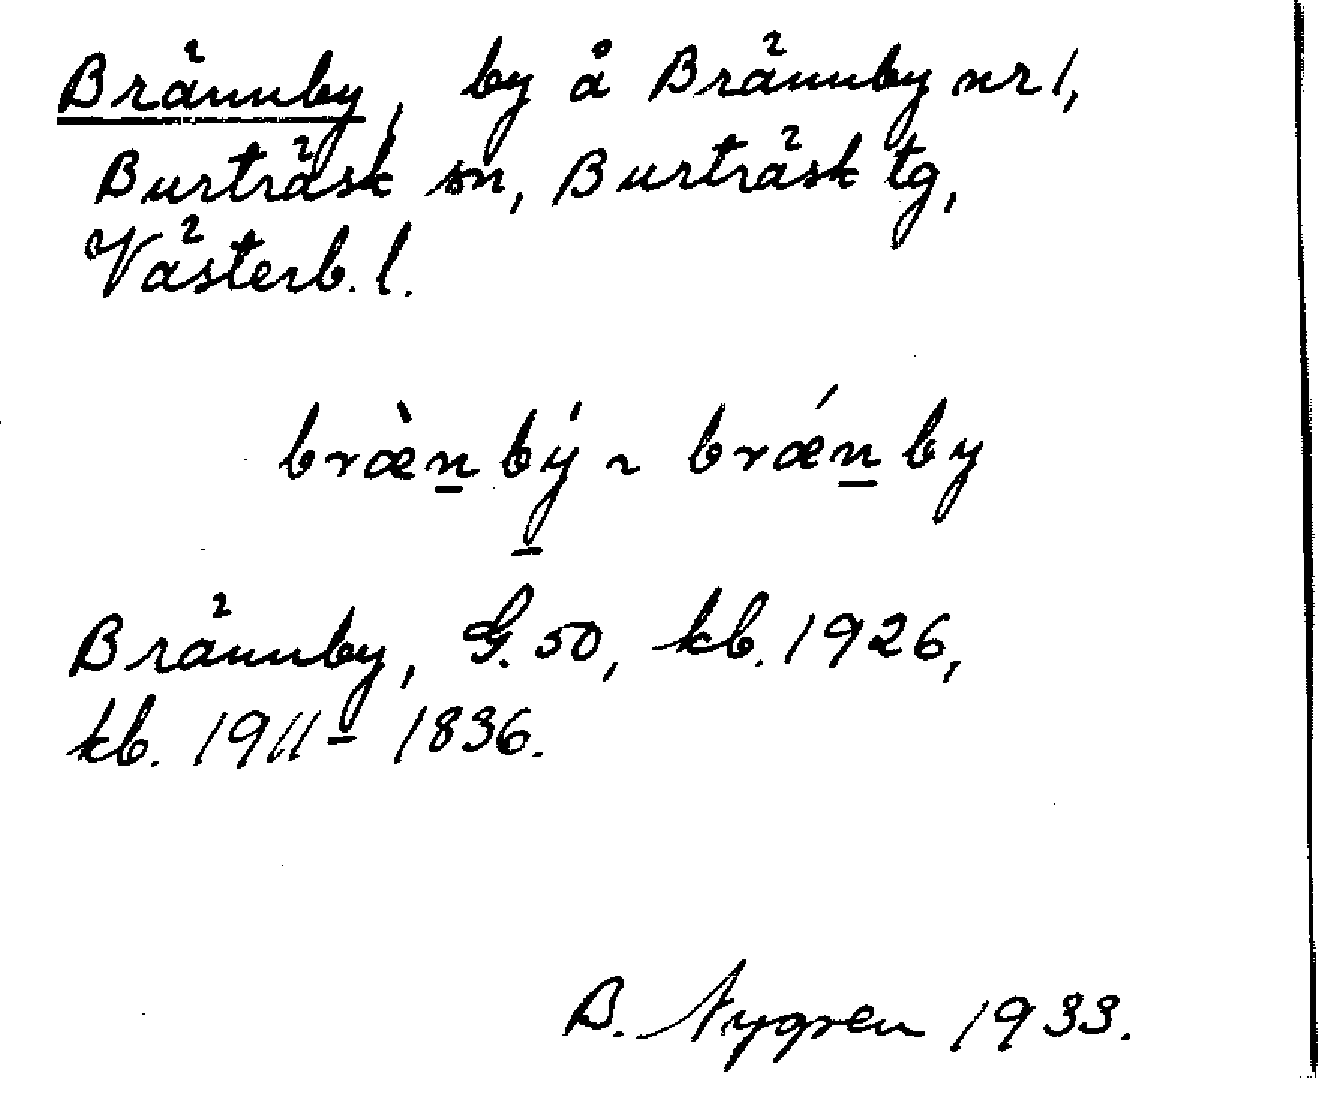 Brännby, by å Brännby nr 1,
Burträsk sn, Burträsk tg,
Västerb. l.
bræ̀n̲ bý̲ ~ brǽn̲ by
Brännby, G. 50, kb. 1926,
kb. 1911 - 1836.
B. Nygren 1933.